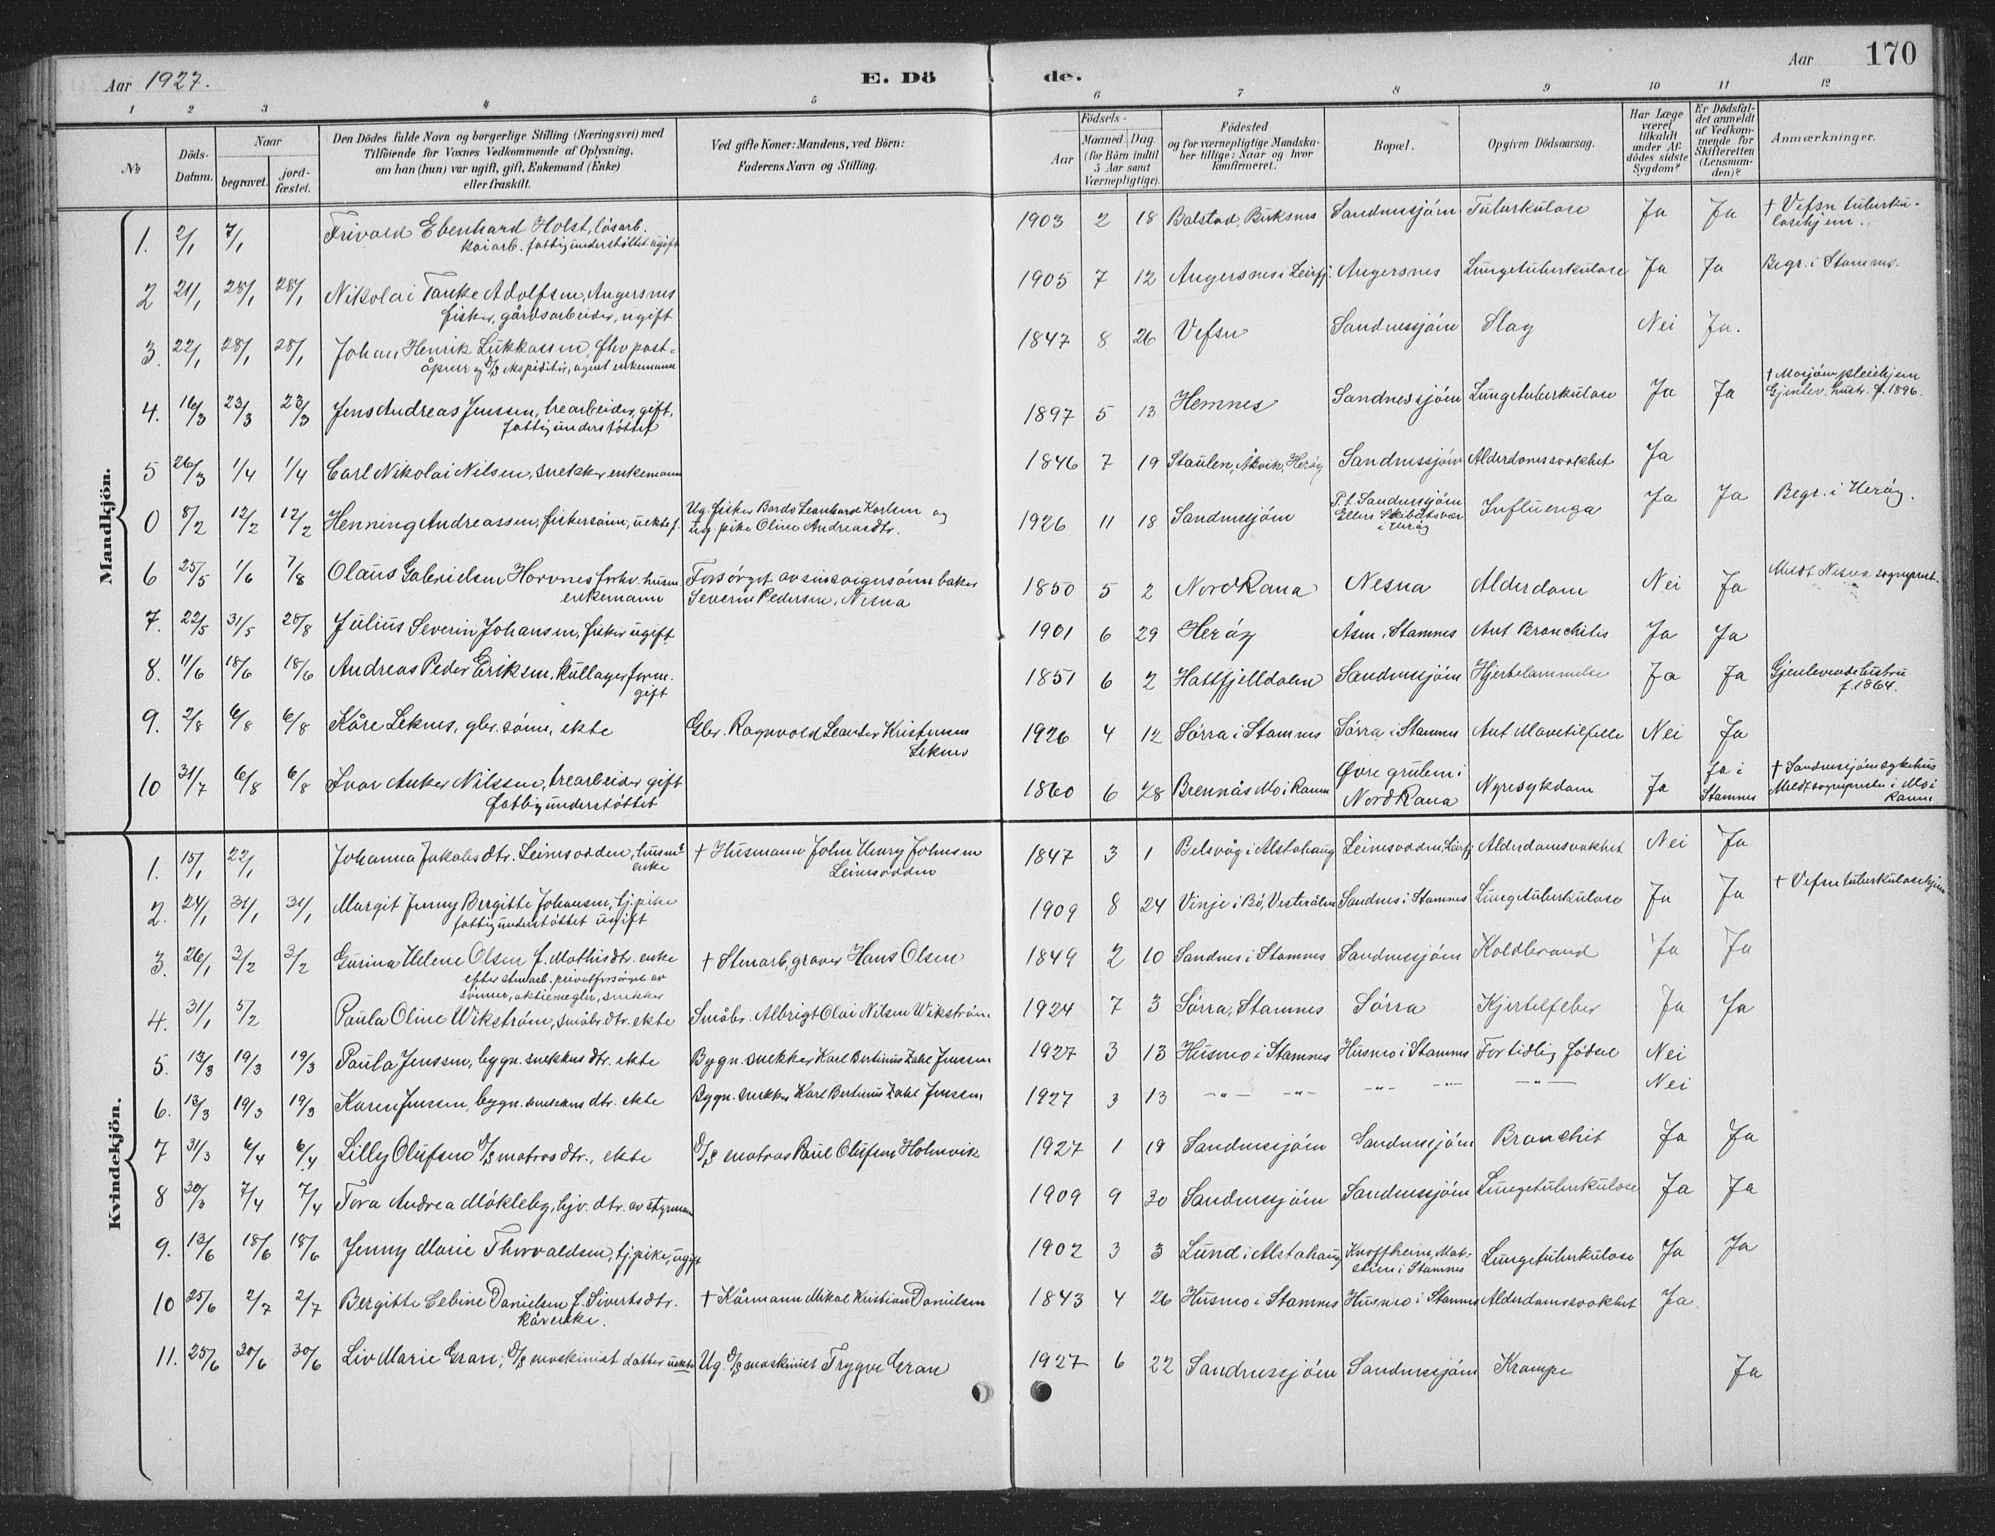 Aar 1927.
E. Dö
de.
Aar
170
1 2 3 4 5 6 7 8 9 10 11 12
No
Döds-
Datum.
Naar
begravet.
jord-
fæstet.
Den Dödes fulde Navn og borgerlige Stilling (Næringsvei) med
Tilföiende for Voxnes Vedkommende af Oplysning,
om han (hun) var ugift, gift, Enkemand (Enke)
eller fraskilt.
Ved gifte Koner: Mandens, ved Börn:
Faderens Navn og Stilling.
Födsels-
Aar
Maaned. Dag.
(for Börn indtil
5 Aar samt
Værnepligtige).
Födested
og for værnepligtige Mandska-
ber tillige: Naar og hvor
konfirmeret.
Bopæl.
Opgiven Dödsaarsag.
Har Læge
været
tilkaldt
under Af-
dödes sidste
Sygdom?
Er Dödsfal-
det anmeldt
af Vedkom-
mende for
Skifteretten
(Lensman-
den)?
Anmærkninger.
Mandkjön.
1. 2/1 7/1 Frivald Ebenhard Holst, løsarb. 1903 2 18 Balstad, Buksnes Sandnessjøen Tuberkulose Ja Ja † Vefsn tuberku-
kaiarb. fattigunderstøttet ugift losehjem.
2 21/1 28/1 28/1 Nikolai Tanke Adolfsen, Angersnes 1905 7 12 Angersnes i Leirfj. Angersnes Lungetuberkulose Ja Ja Begr. i Stamnes.
fisker, gårdsarbeider, ugift
3. 22/1 28/1 28/1 Johan Henrik Lukkassen, fhv post- 1847 8 26 Vefsn Sandnessjøen Slag Nei Ja.
åpner og D/S ekspeditør, agent enkemann
4. 16/3 23/3 23/3 Jens Andreas Jenssen, trearbeider, gift, 1897 5 13 Hemnes Sandnessjøen Lungetuberkulose Ja Ja † Mosjøen pleiehjem
fattigunderstøttet Gjenlev. hustr. f. 1896.
5 26/3 1/4 1/4 Carl Nikolai Nilsen, snekker enkemann 1846 7 19 Staulen, Åkvik, Herøy Sandnessjøen Alderdomssvakhet Ja
0 8/2 12/2 12/2 Henning Andreassen, fiskersønn, uekte f. Ug. fisker Bardo Leonhard Karlsen og 1926 11 18 Sandnessjøen P.t. Sandnessjøen Influenga Ja Ja Begr. i Herøy.
ug. pike Oline Andreasdtr. Ellers Skibåtsvær
i Herøy
6 25/5 1/6 7/8 Olaus Gabrielsen Horvnes forhv. husm. Forsørget av sin svigersønn baker 1850 5 2 Nord Rana Nesna Alderdom Nei Ja Meldt Nesna sogneprest.
enkemann Severin Pedersen, Nesna
7. 22/5 31/5 28/8 Julius Severin Johansen, fisker ugift 1901 6 29 Herøy Åsen i Stamnes Aut Bronchitis Ja Ja
8. 11/6 18/6 18/6 Andreas Peder Eriksen, kullagerform. 1851 6 2 Hattfjelldalen Sandnessjøen Hjertelammelse Ja Ja Gjenlevende hustru
gift f. 1864.
9. 2/8 6/8 6/8 Kåre Leknes, gbr. sønn, ekte Gbr. Ragnvald Leander Kristensen 1926 4 12 Sørra i Stamnes Sørra i Stamnes Aut Mavetilfelle Nei Ja
Leknes
10 31/7 6/8 6/8 Ivar Anker Nilssen, trearbeider gift 1860 6 28 Brennås Mo i Rana Øvre gruben i Nyresykdom Ja Ja i † Sandnessjøen sykehus
fattigunderstøttet Nord Rana Stamnes Meldt sogneprest i Mo i
Rana
Kvindekjön.
1. 15/1 22/1 Johanna Jakobsdtr. Leinesodden, husm. † Husmann John Henry Johnsen 1847 3 1 Belsvåg i Alstahaug Leinesodden, Leirfj. Alderdomssvakhet Nei Ja
enke Leinesodden
2. 24/1 31/1 31/1 Margit Jenny Bergitte Johansen, tj. pike 1909 8 24 Vinje i Bø, Vesterålen Sandnes i Stamnes Lungetuberkulose Ja Ja † Vefsn tuberkulosehjem
fattigunderstøttet ugift
3. 26/1 3/2 3/2 Gurina Helene Olsen f. Mathisdtr. enke † Stenarb, graver Hans Olsen 1849 2 10 Sandnes i Stamnes Sandnessjøen Koldbrand Ja Ja
efter stenarb. privatforsørget av
sønner, aktiemegler, snekker
4. 31/1 5/2 Paula Oline Wikstrøm, småbr. dtr. ekte Småbr. Albrigt Olai Nilsen Wikstrøm 1924 7 3 Sørra, Stamnes Sørra Kjertelfeber Ja Ja
5. 13/3 19/3 19/3 Paula Jenssen, bygn. snekkers dtr. ekte Bygn. snekker Karl Bertinus Zahl Jenssen 1927 3 13 Husmo i Stamnes Husmo i Stamnes For tidlig fødsel Nei
6. 13/3 19/3 19/3 Karen Jenssen, bygn. snekkers dtr. ekte Bygn. snekker Karl Bertinus Zahl Jenssen 1927 3 13 -"- -"- -"- -"- -"- Nei
7 31/3 6/4 6/4 Lilly Olufsen D/S matros dtr., ekte D/S matros Paul Olufsen Holmvik 1927 1 19 Sandnessjøen Sandnessjøen Bronchit Ja Ja
8 30/3 7/4 7/4 Tora Andrea Møkleby, hjv. dtr. av styrmann 1909 9 30 Sandnessjøen Sandnessjøen Lungetuberkulose Ja Ja
9. 13/6 18/6 18/6 Jenny Marie Thorvaldsen, tj. pike, ugift 1902 3 3 Lund i Alstahaug Knoffheim, Mat- Lungetuberkulose Ja Ja
stien i Stamnes
10 25/6 2/7 2/7 Bergitte Cebine Danielsen f. Sivertsdtr. † Kårmann Mikal Kristian Danielsen 1843 4 26 Husmo i Stamnes Husmo i Stamnes Alderdomssvakhet Ja.
kårenke.
11. 25/6 30/6 30/6 Liv Marie Gran, D/S maskinist datter uekte Ug. D/S maskinist Trygve Gran 1927 6 22 Sandnessjøen Sandnessjøen Krampe Ja